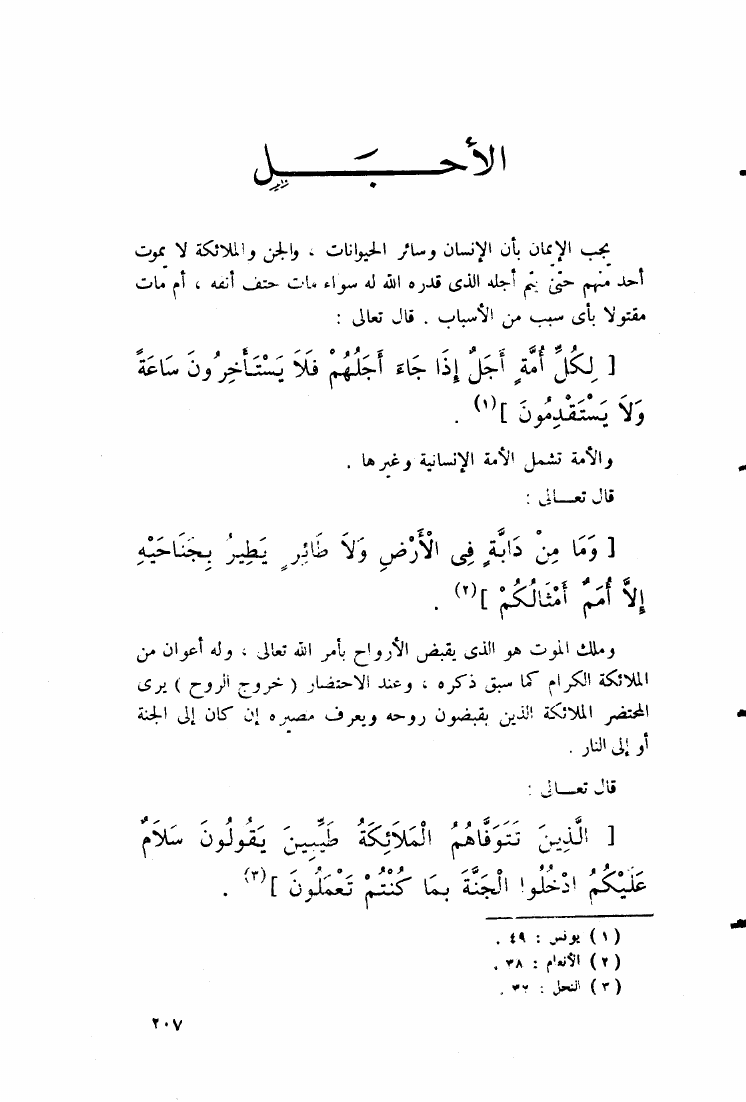 الأجل
يجب الإيمان بأن الإنسان وسائر الحيوانات ، والجن والملائكة لا يموت
أحد منهم حتى يتم أجله الذى قدره الله له سواء مات حتف أنفه ، أم مات
مقتولا بأى سبب من الأسباب . قال تعالى :
[ لِكُلِّ أُمَّةٍ أَجَلٌ إِذَا جَاءَ أَجَلُهُمْ فَلَا يَسْتَأْخِرُونَ سَاعَةً
وَلَا يَسْتَقْدِمُونَ ](١) .
والأمة تشمل الأمة الإنسانية وغيرها .
قال تعـالى :
[ وَمَا مِنْ دَابَّةٍ فِى الْأَرْضِ وَلَا طَائِرٍ يَطِيرُ بِجَنَاحَيْهِ
إِلَّا أُمَمٌ أَمْثَالُكُمْ ](٢) .
وملك الموت هو الذى يقبض الأرواح بأمر الله تعالى ، وله أعوان من
الملائكة الكرام كما سبق ذكره ، وعند الاحتضار ( خروج الروح ) يرى
المحتضر الملائكة الذين يقبضون روحه ويعرف مصيره إن كان إلى الجنة
أو إلى النار .
قال تعـالى :
[ الَّذِينَ تَتَوَفَّاهُمُ الْمَلَائِكَةُ طَيِّبِينَ يَقُولُونَ سَلَامٌ
عَلَيْكُمُ ادْخُلُوا الْجَنَّةَ بِمَا كُنْتُمْ تَعْمَلُونَ ](٣) .
(١) يونس : ٤٩ .
(٢) الأنعام : ٣٨ .
(٣) النحل : ٣٢ .
٢٠٧